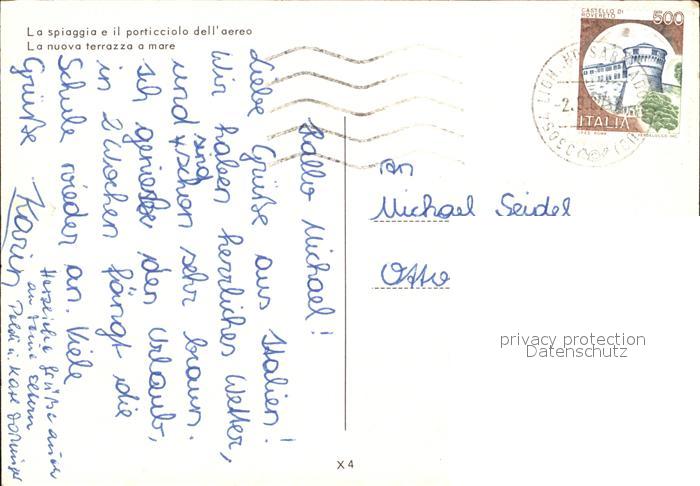 La spiaggia e il porticciolo dell'aereo
La nuova terrazza a mare
Hallo Michael!
Liebe Grüße aus Italien!
Wir haben herrliches Wetter,
und sind schon sehr braun.
ich genieße den Urlaub,
in 2 Wochen fängt die
Schule wieder an. Viele
Grüße Karin
Herzliche Grüße auch
an Deine Eltern
CASTELLO DI
ROVERETO
500
ITALIA
An
Michael Seidel
Otto
privacy protection
Datenschutz
X 4